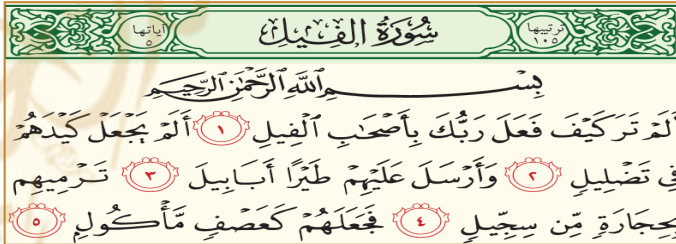 ترتيبها ١٠٥ سُورَةُ الفِيلِ آياتها ٥
بِسْمِ اللَّهِ الرَّحْمَٰنِ الرَّحِيمِ
أَلَمْ تَرَ كَيْفَ فَعَلَ رَبُّكَ بِأَصْحَٰبِ ٱلْفِيلِ ١ أَلَمْ يَجْعَلْ كَيْدَهُمْ
فِى تَضْلِيلٍ ٢ وَأَرْسَلَ عَلَيْهِمْ طَيْرًا أَبَابِيلَ ٣ تَرْمِيهِم
بِحِجَارَةٍ مِّن سِجِّيلٍ ٤ فَجَعَلَهُمْ كَعَصْفٍ مَّأْكُولٍ ٥